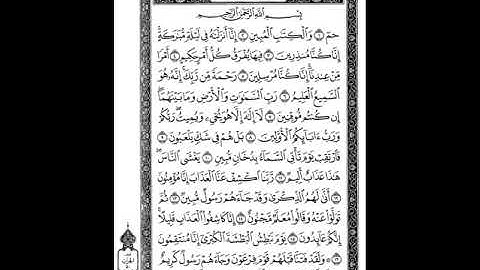 بِسْمِ اللَّهِ الرَّحْمَٰنِ الرَّحِيمِ
حمٓ ١ وَٱلْكِتَٰبِ ٱلْمُبِينِ ٢ إِنَّآ أَنزَلْنَٰهُ فِى لَيْلَةٍ مُّبَٰرَكَةٍ
إِنَّا كُنَّا مُنذِرِينَ ٣ فِيهَا يُفْرَقُ كُلُّ أَمْرٍ حَكِيمٍ ٤ أَمْرًا
مِّنْ عِندِنَآ إِنَّا كُنَّا مُرْسِلِينَ ٥ رَحْمَةً مِّن رَّبِّكَ إِنَّهُۥ هُوَ
ٱلسَّمِيعُ ٱلْعَلِيمُ ٦ رَبِّ ٱلسَّمَٰوَٰتِ وَٱلْأَرْضِ وَمَا بَيْنَهُمَآ
إِن كُنتُم مُّوقِنِينَ ٧ لَآ إِلَٰهَ إِلَّا هُوَ يُحْىِۦ وَيُمِيتُ رَبُّكُمْ
وَرَبُّ ءَابَآئِكُمُ ٱلْأَوَّلِينَ ٨ بَلْ هُمْ فِى شَكٍّ يَلْعَبُونَ ٩
فَٱرْتَقِبْ يَوْمَ تَأْتِى ٱلسَّمَآءُ بِدُخَانٍ مُّبِينٍ ١٠ يَغْشَى ٱلنَّاسَ
هَٰذَا عَذَابٌ أَلِيمٌ ١١ رَّبَّنَا ٱكْشِفْ عَنَّا ٱلْعَذَابَ إِنَّا مُؤْمِنُونَ
١٢ أَنَّىٰ لَهُمُ ٱلذِّكْرَىٰ وَقَدْ جَآءَهُمْ رَسُولٌ مُّبِينٌ ١٣ ثُمَّ
تَوَلَّوْا۟ عَنْهُ وَقَالُوا۟ مُعَلَّمٌ مَّجْنُونٌ ١٤ إِنَّا كَاشِفُوا۟ ٱلْعَذَابِ قَلِيلًا
إِنَّكُمْ عَآئِدُونَ ١٥ يَوْمَ نَبْطِشُ ٱلْبَطْشَةَ ٱلْكُبْرَىٰٓ إِنَّا مُنتَقِمُونَ
١٦ وَلَقَدْ فَتَنَّا قَبْلَهُمْ قَوْمَ فِرْعَوْنَ وَجَآءَهُمْ رَسُولٌ كَرِيمٌ